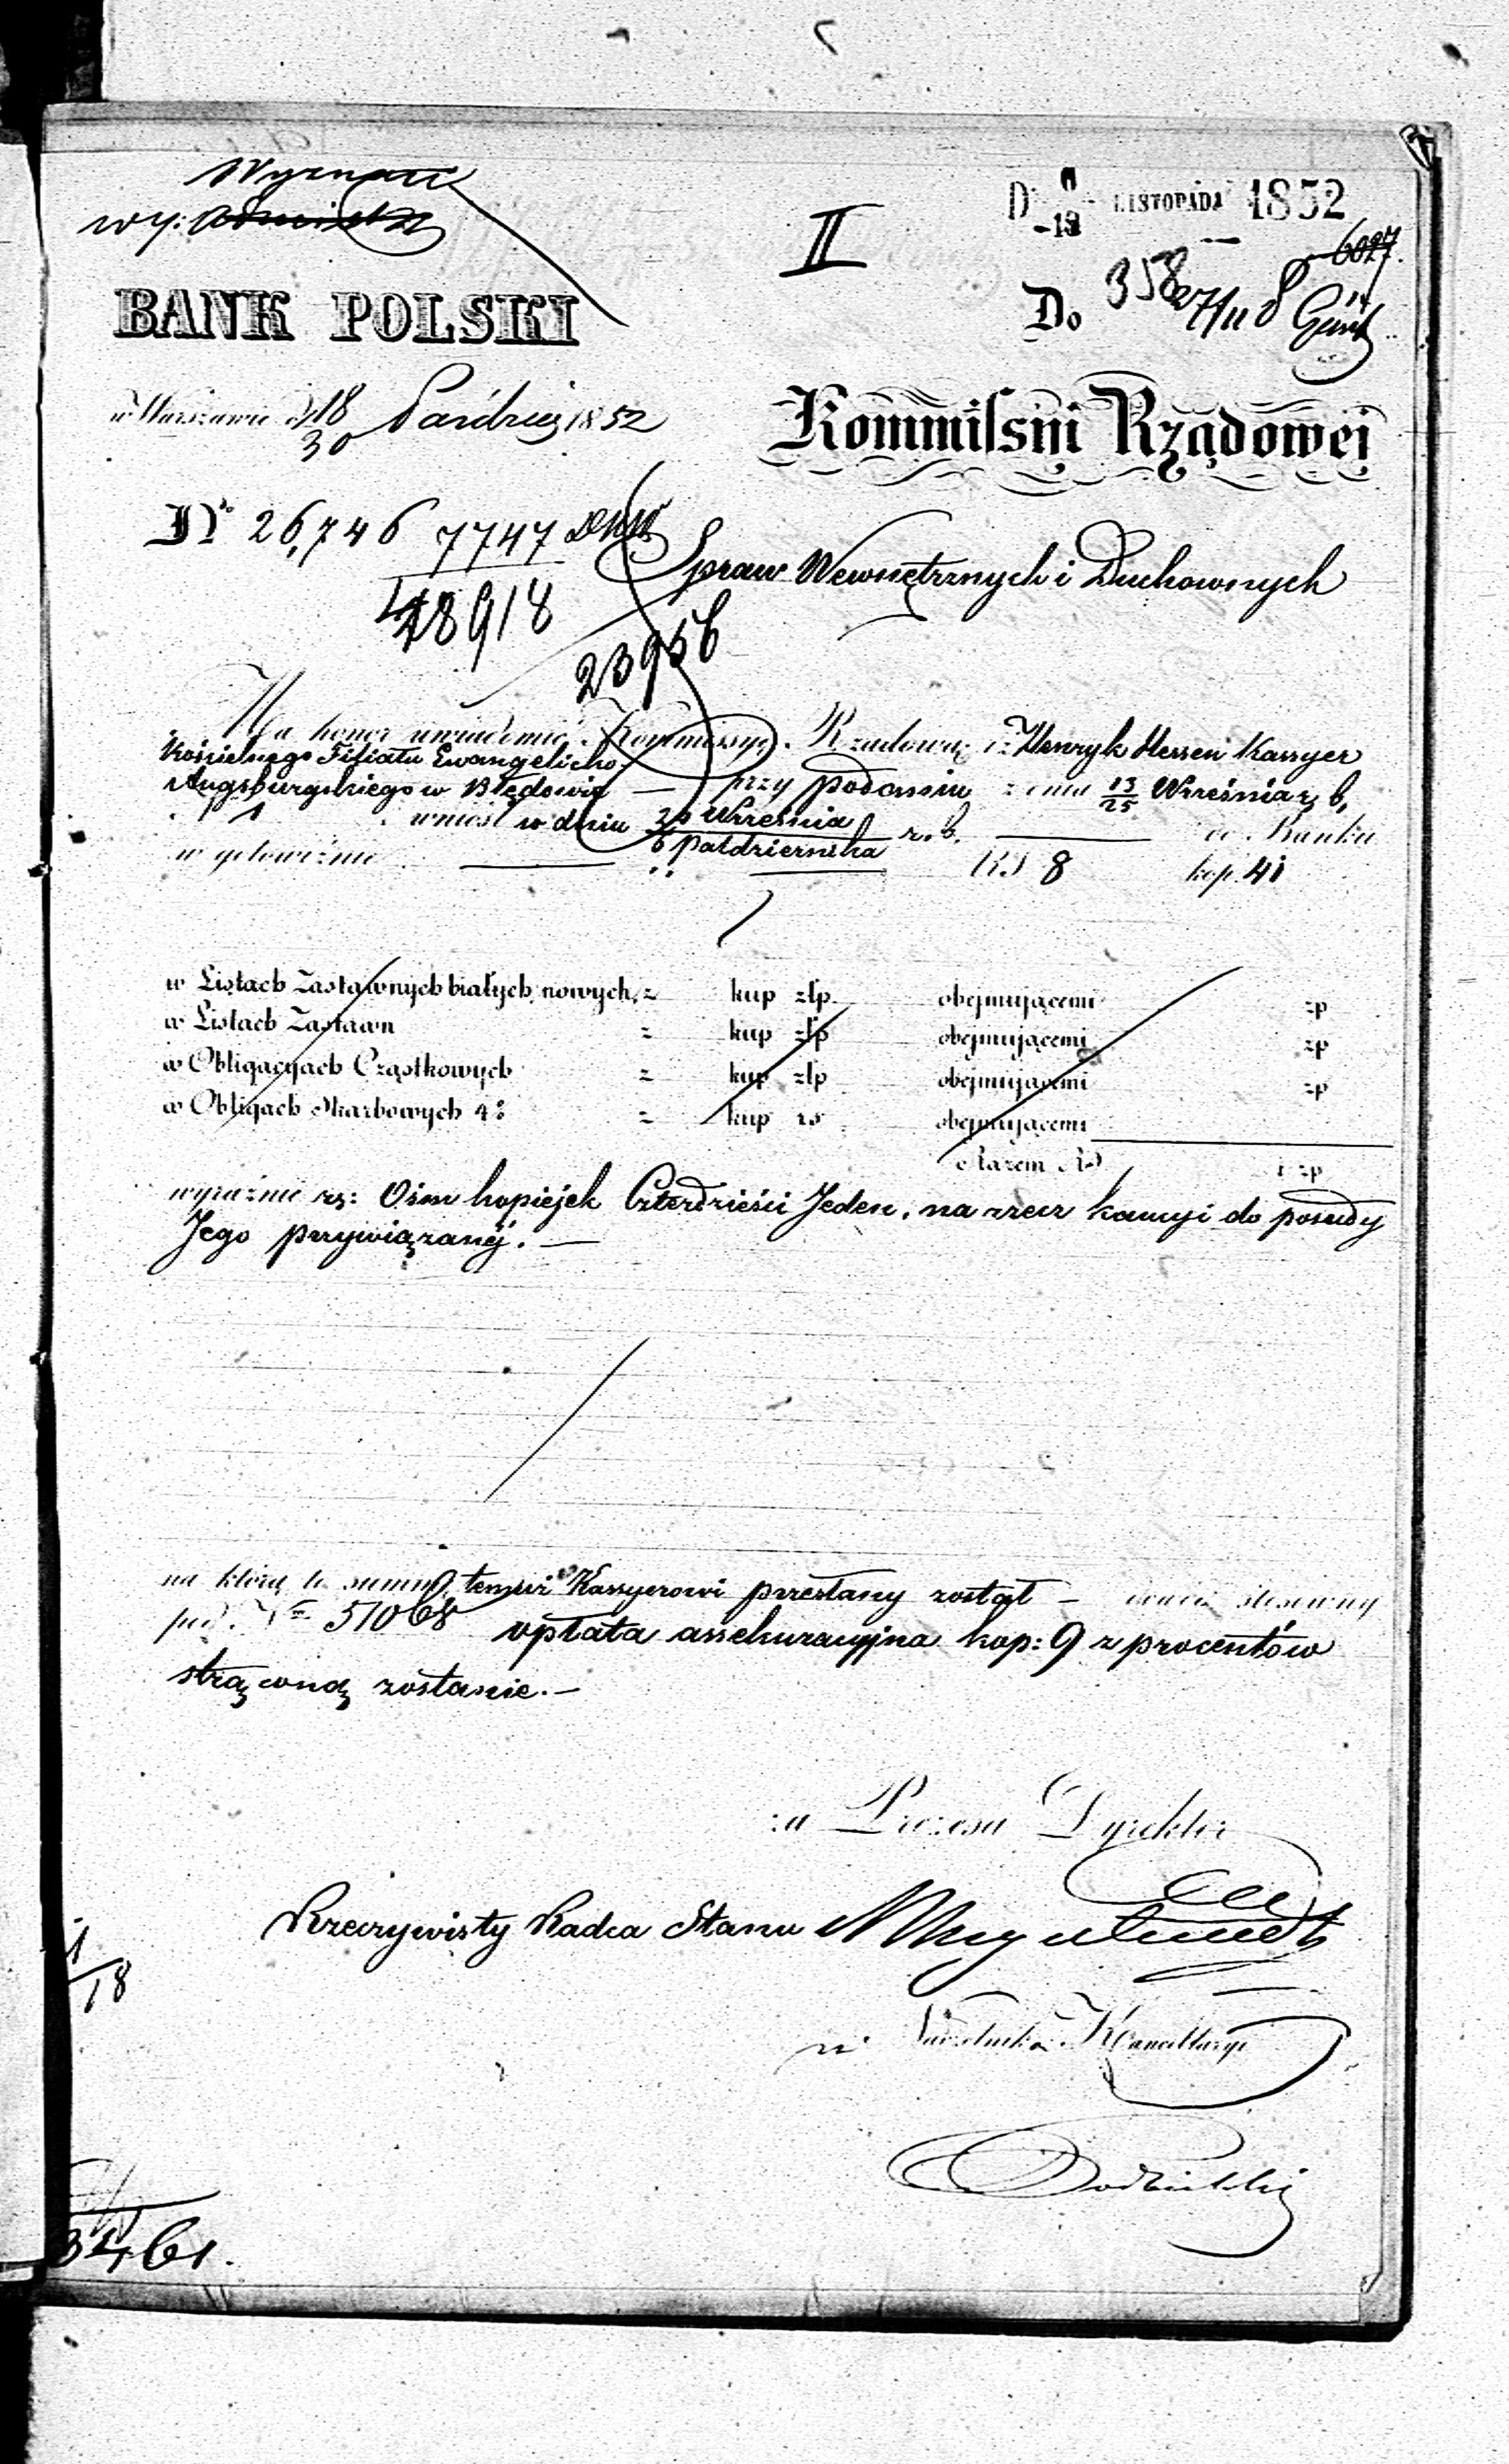 Wyznań
wy:
II
D. 6/18 LISTOPADA 1852
6027
Do
358
27/11 8
BANK POLSKI
w Warszawie d. 18/30 Paździer 1852
Kommissyi Rządowej
Nr 26,746 7747
Spraw Wewnętrznych i Duchownych
28918
23956
Ma honor uwiadomić Kommissyę Rządową iż Henryk Hessen Kassyer
Kościelnego Filiału Ewangelicko-
Augsburgskiego w Błędowie — przy podaniu z dnia 13/25 Września r. b.
wniósł w dniu 24 Września / 6 Października r. b. — do Banku
w gotowiźnie — RS 8 kop. 41
w Listach Zastawnych białych nowych z kup złp obejmującemi zp
w Listach Zastawn z kup złp obejmującemi zp
w Obligacyach Cząstkowych z kup złp obejmującemi zp
w Obligach Skarbowych 4% z kup rs obejmującemi
Razem RS i zp
wyraźnie rs: Ośm kopiejek Czterdzieści Jeden, na rzecz kaucyi do posady
Jego przywiązanéj. —
na którą to summę temuż Kassyerowi przesłany został — dowód stosowny
pod Nr 51068 opłata assekuracyjna kop: 9 z procentów
strąconą zostanie. —
za Prezesa Dyrektor
Rzeczywisty Radca Stanu
Naczelnika Kancellaryi
1/18
3461.